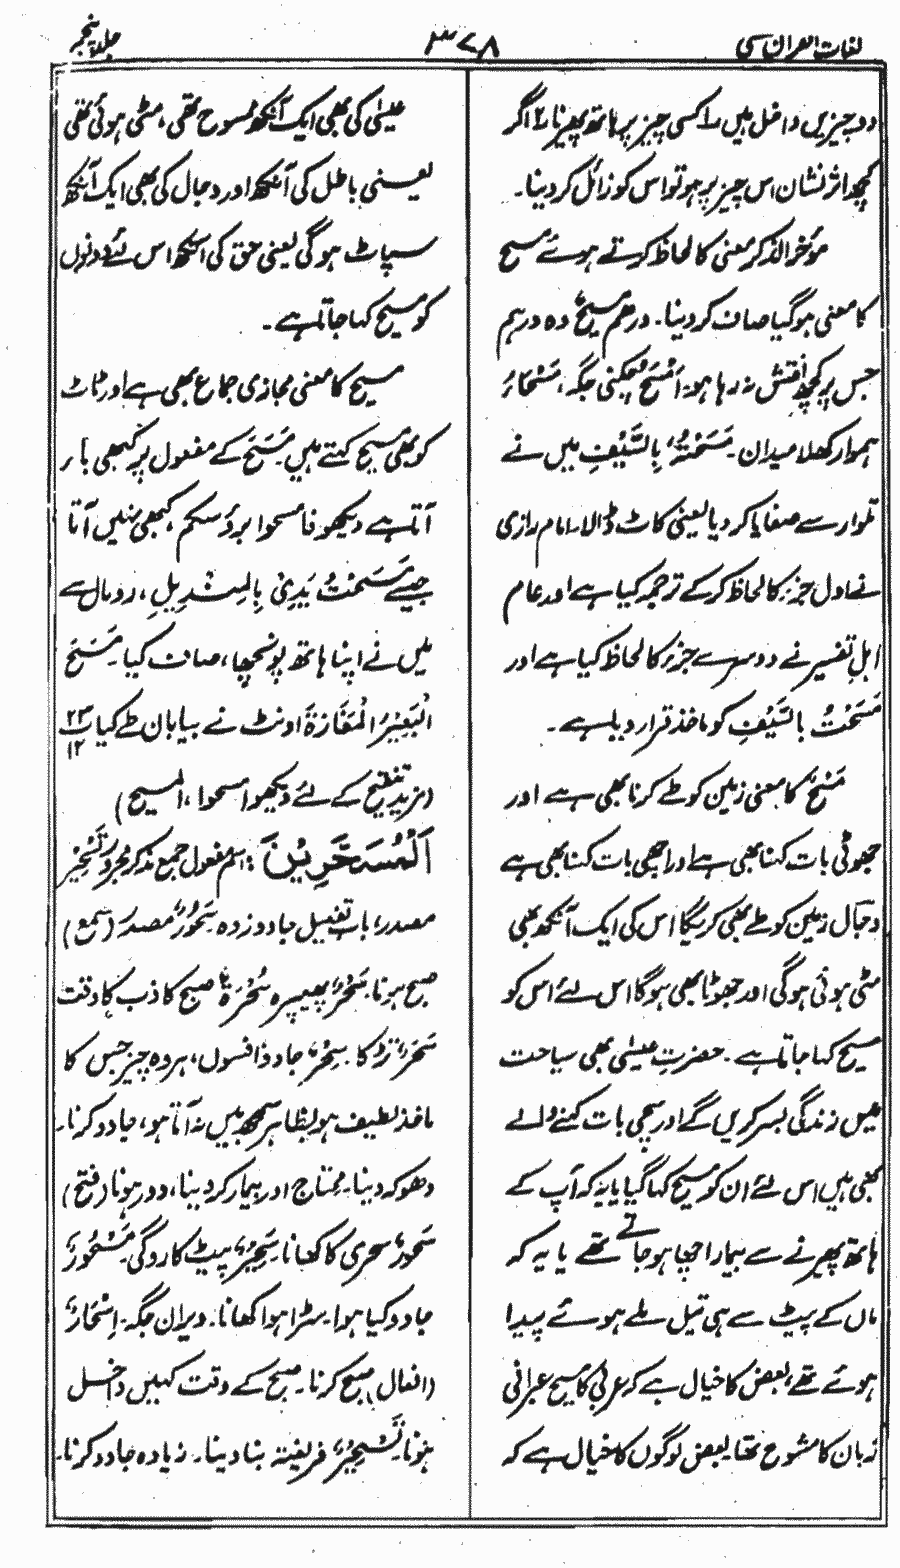 لغات القرآن سی
۳۷۸
جلد پنجم
دو چیزیں داخل ہیں ۱ کسی چیز پر ہاتھ پھیرنا ۲ اگر
کچھ اثر نشان اس چیز پر ہو تو اس کو زائل کر دینا۔
مؤخر الذکر معنی کا لحاظ کرتے ہوئے مسح
کا معنی ہو گیا صاف کر دینا۔ درھم مسیحٌ وہ درہم
جس پر کچھ نقش نہ رہا ہو۔ اَمْسَح چکنی جگہ، مَسْحَاءُ
ہموار کھلا میدان۔ مَسَحْتُہٗ بِالسَّیْفِ میں نے
تلوار سے صفایا کر دیا یعنی کاٹ ڈالا۔ امام رازی
نے اول جزء کا لحاظ کر کے ترجمہ کیا ہے اور عام
اہل تفسیر نے دوسرے جزء کا لحاظ کیا ہے اور
مَسَحْتُ بالسَّیْفِ کو ماخذ قرار دیا ہے۔
مَسْحٌ کا معنی زمین کو طے کرنا بھی ہے اور
جھوٹی بات کہنا بھی ہے اور اچھی بات کہنا بھی ہے
دجّال زمین کو طے بھی کریگا اس کی ایک آنکھ بھی
مٹی ہوئی ہو گی اور جھوٹا بھی ہوگا اس لئے اس کو
مسیح کہا جاتا ہے۔ حضرتِ عیسیٰ بھی سیاحت
میں زندگی بسر کریں گے اور سچی بات کہنے والے
بھی ہیں اس لئے ان کو مسیح کہا گیا یا یہ کہ آپ کے
ہاتھ پھیرنے سے بیمار اچھا ہو جاتے تھے یا یہ کہ
ماں کے پیٹ سے ہی تیل ملے ہوئے پیدا
ہوئے تھے، بعض کا خیال ہے کہ عربی کا مسیح عبرانی
زبان کا مشوح تھا۔ بعض لوگوں کا خیال ہے کہ
عیسیٰ کی بھی ایک آنکھ ممسوح تھی، مٹی ہوئی تھی
یعنی باطل کی آنکھ اور دجال کی بھی ایک آنکھ
سپاٹ ہو گی یعنی حق کی آنکھ اس لئے دونوں
کو مسیح کہا جاتا ہے۔
مسیح کا معنی مجازی جماع بھی ہے اور ٹاٹ
کو بھی مسیح کہتے ہیں۔ مَسَحَ کے مفعول پر کبھی باء
آتا ہے دیکھو فامسحوا برؤسکم، کبھی نہیں آتا
جیسے مَسَحْتُ یَدِیْ بِالمِنْدِیلِ، رومال سے
میں نے اپنا ہاتھ پونچھا، صاف کیا۔ مَسَحَ
الْبَعِیْرُ الْمَفَازَۃَ اونٹ نے بیابان طے کیا پ ۲۳
۱۲
(مزید تنقیح کے لئے دیکھو امسحوا، المسیح)
اَلْمُسَحَّرِیْنَ: اسم مفعول جمع مذکر مجرور تَسْحِیْرٌ
مصدر، باب تفعیل جادو زدہ۔ سَحُوْرٌ مصدر (سمع)
صبح ہونا۔ سَحْرٌ پھیپھڑہ سُحْرَۃٌ صبح کاذب کا وقت
سَحَرٌ تڑکا۔ سِحْرٌ جادو افسوں، ہر وہ چیز جس کا
ماخذ لطیف ہو بظاہر سمجھ میں نہ آتا ہو، جادو کرنا۔
دھوکہ دینا۔ محتاج اور بیمار کر دینا، دور ہونا (فتح)
سَحُورٌ سحری کا کھانا۔ سَحِیْرٌ پیٹ کا روگی۔ مَسْحُورٌ
جادو کیا ہوا۔ سڑا ہوا کھانا۔ ویران جگہ۔ اِسْحَارٌ
(افعال) صبح کرنا۔ صبح کے وقت کہیں داخل
ہونا۔ تَسْحِیْرٌ فریفتہ بنا دینا۔ زیادہ جادو کرنا۔